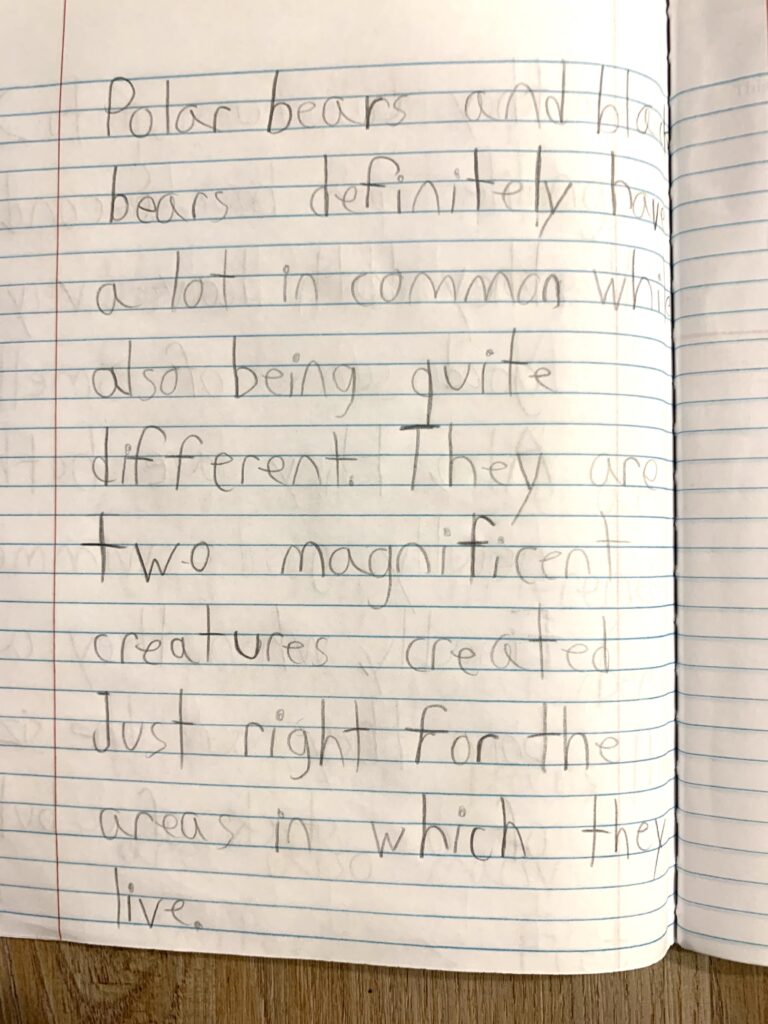 Polar bears and
bears definitely have
a lot in common
also being quite
different. They are
two magnificent
creatures, created
Just right for the
areas in which they
live.